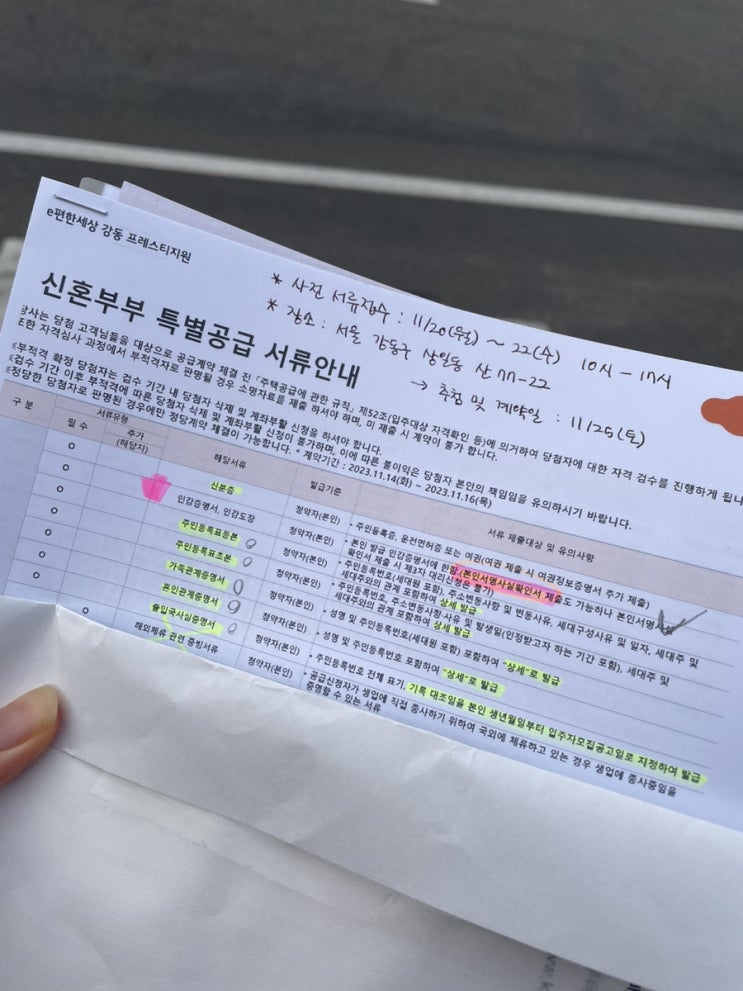 e편한세상 강동 프레스티지원
* 사전 서류접수 : 11/20(월) ~ 22(수) 10시 - 17시
* 장소 : 서울 강동구 상일동 산 77-22
→ 추첨 및 계약일 : 11/25(토)
신혼부부 특별공급 서류안내
당사는 당첨 고객님들을 대상으로 공급계약 체결 전 「주택공급에 관한 규칙」 제52조(입주대상 자격확인 등)에 의거하여 당첨자에 대한 자격 검수를 진행하게 됩니
또한 자격심사 과정에서 부적격자로 판명될 경우 소명자료를 제출 하셔야 하며, 미 제출 시 계약이 불가 합니다.
※부적격 확정 당첨자는 검수 기간 내 당첨자 삭제 및 계좌부활 신청을 하셔야 합니다.
※검수 기간 이후 부적격에 따른 당첨자 삭제 및 계좌부활 신청이 불가하며, 이에 따른 불이익은 당첨자 본인의 책임임을 유의하시기 바랍니다.
※정당한 당첨자로 판명된 경우에만 정당계약 체결이 가능합니다. * 계약기간 : 2023.11.14(화) ~ 2023.11.16(목)
구 분 서류유형 해당서류 발급기준 서류 제출대상 및 유의사항
필 수 추가
(해당자)
O 신분증 청약자(본인) • 주민등록증, 운전면허증 또는 여권(여권 제출 시 여권정보증명서 추가 제출)
O 인감증명서, 인감도장 청약자(본인) • 본인 발급 인감증명서에 한함 (본인서명사실확인서 제출도 가능하나 본인서명
확인서 제출 시 제3자 대리신청은 불가)
O 주민등록표등본 청약자(본인) • 주민등록번호(세대원 포함), 주소변동사항 및 변동사유, 세대구성사유 및 일자, 세대주 및
세대주와의 관계 포함하여 상세 발급
O 주민등록표초본 청약자(본인) • 주민등록번호, 주소변동사항·사유 및 발생일(인정받고자 하는 기간 포함), 세대주 및
세대주와의 관계 포함하여 상세 발급
O 가족관계증명서 청약자(본인) • 성명 및 주민등록번호(세대원 포함) 포함하여 "상세"로 발급
혼인관계증명서 청약자(본인) • 성명 및 주민등록번호 포함하여 "상세"로 발급
O 출입국사실증명서 청약자(본인) • 주민등록번호 전체 표기, 기록 대조일을 본인 생년월일부터 입주자모집공고일로 지정하여 발급
해외체류 관련 증빙서류 청약자(본인) • 공급신청자가 생업에 직접 종사하기 위하여 국외에 체류하고 있는 경우 생업에 종사중임을
증명할 수 있는 서류